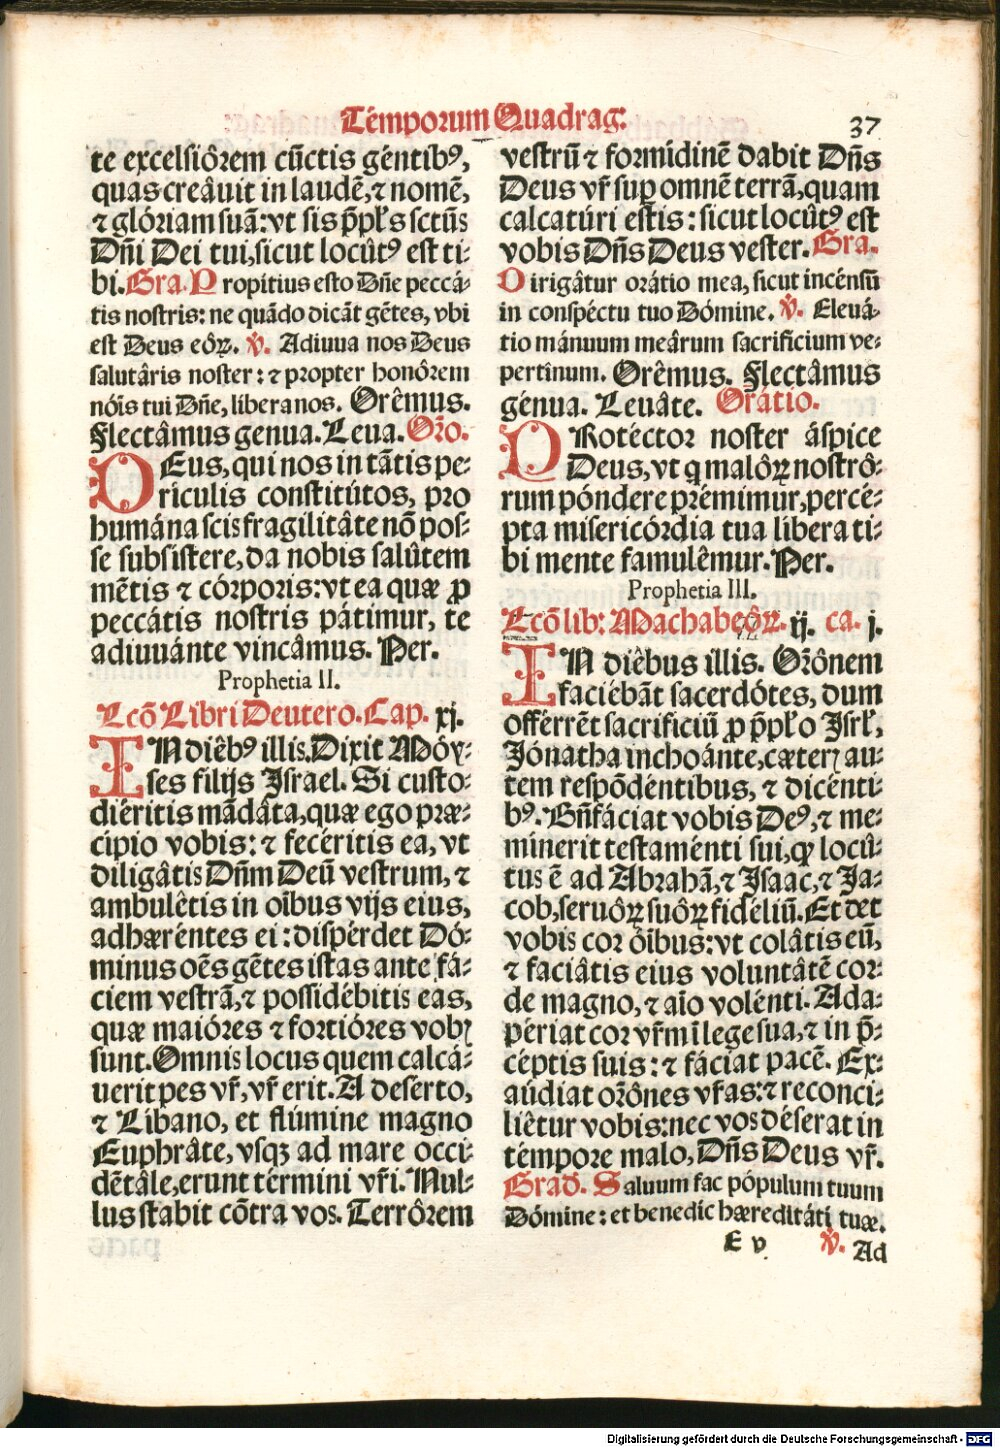 Témporum Quadrag:
37
te excelsiôrem cũctis géntibꝰ,
quas creâuit in laudẽ, ⁊ nomẽ,
⁊ glóriam suã: vt sis p̃pl̃s sctũs
Dñi Dei tui, sicut locûtꝰ est ti⸗
bi. Gra. Propitius esto Dñe peccá⸗
tis nostris: ne quãdo dicãt gẽtes, vbi
est Deus eôꝝ. ℣. Adiuua nos Deus
salutâris noster: ⁊ propter honôrem
nóĩs tui Dñe, libera nos. Orêmus.
Flectâmus genua. Leua. Orõ.
DEus, qui nos in tãtis pe⸗
riculis constitútos, pro
humána scis fragilitâte nõ pos⸗
se subsistere, da nobis salûtem
mẽtis ⁊ córporis: vt ea quæ ꝓ
peccátis nostris pátimur, te
adiuuánte vincâmus. Per.
Prophetia II.
Lcõ Libri Deutero. Cap. xj.
IN diêbꝰ illis. Dixit Môy⸗
ses filijs Israel. Si custo⸗
diéritis mãdâta, quæ ego præ⸗
cipio vobis: ⁊ fecéritis ea, vt
diligâtis Dñm Deũ vestrum, ⁊
ambulêtis in oĩbus vijs eius,
adhæréntes ei: dispérdet Dó⸗
minus oẽs gẽtes istas ante fá⸗
ciem vestrã, ⁊ possidébitis eas,
quæ maióres ⁊ fortióres vobꝭ
sunt. Omnis locus quem calcá⸗
uerit pes vr̃, vr̃ erit. A deserto,
⁊ Líbano, et flúmine magno
Euphrâte, vsqꝫ ad mare occi⸗
dẽtâle, erunt términi vr̃i. Nul⸗
lus stabit cõtra vos. Terrôrem
vestrũ ⁊ formídinẽ dabit Dñs
Deus vr̃ sup omnẽ terrã, quam
calcatúri estis: sicut locûtꝰ est
vobis Dñs Deus vester. Gra.
Dirigâtur orátio mea, sicut incénsũ
in conspéctu tuo Dómine. ℣. Eleuá⸗
tio mánuum meârum sacrificium ve⸗
pertînum. Orêmus. Flectâmus
génua. Leuâte. Orátio.
PRotéctor noster áspice
Deus, vt q malôꝝ nostrô⸗
rum póndere prémimur, percé⸗
pta misericórdia tua libera ti⸗
bi mente famulêmur. Per.
Prophetia III.
Lcõ lib: Machabeôꝝ. ij. ca. j.
IN diêbus illis. Orõnem
faciébãt sacerdótes, dum
offérrẽt sacrificiũ ꝓ p̃pl̃o Isrl̃,
Jónatha inchoánte, cæterꝭ au⸗
tem respõdéntibus, ⁊ dicénti⸗
bꝰ. Bñfáciat vobis Deꝰ, ⁊ me⸗
mínerit testaménti sui, qꝫ locû⸗
tus ẽ ad Abrahã, ⁊ Isaac, ⁊ Ja⸗
cob, seruôꝝ suôꝝ fidéliũ. Et det
vobis cor óĩbus: vt colâtis eũ,
⁊ faciâtis eius voluntâtẽ cor⸗
de magno, ⁊ aĩo volénti. Ada⸗
périat cor vr̃m ĩ lege sua, ⁊ in p̃⸗
céptis suis: ⁊ fáciat pacẽ. Ex⸗
aúdiat orõnes vr̃as: ⁊ reconci⸗
liêtur vobis: nec vos déserat in
témpore malo, Dñs Deus vr̃.
Grad. Saluum fac pópulum tuum
Dómine: et benedic hæreditáti tuæ.
E v ℣. Ad
Digitalisierung gefördert durch die Deutsche Forschungsgemeinschaft - DFG